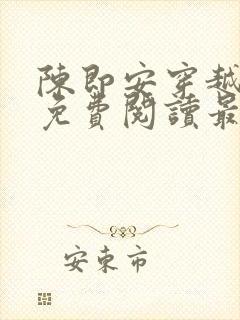 陳即安穿越
免費閱讀最
安東市